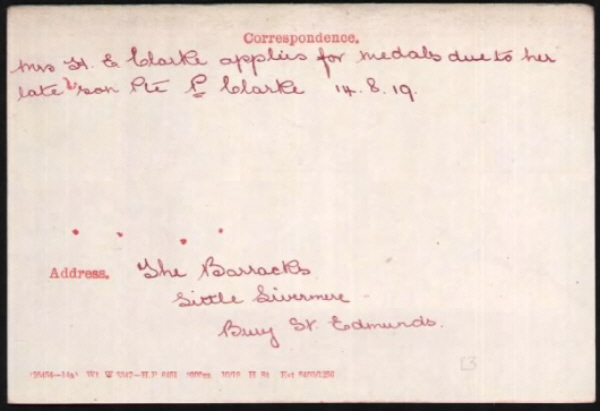 Correspondence.
Mrs H. E Clarke applies for medals due to her
late son Pte P Clarke 14.8.19.
Address. The Barracks
Little Livermere
Bury St. Edmunds.